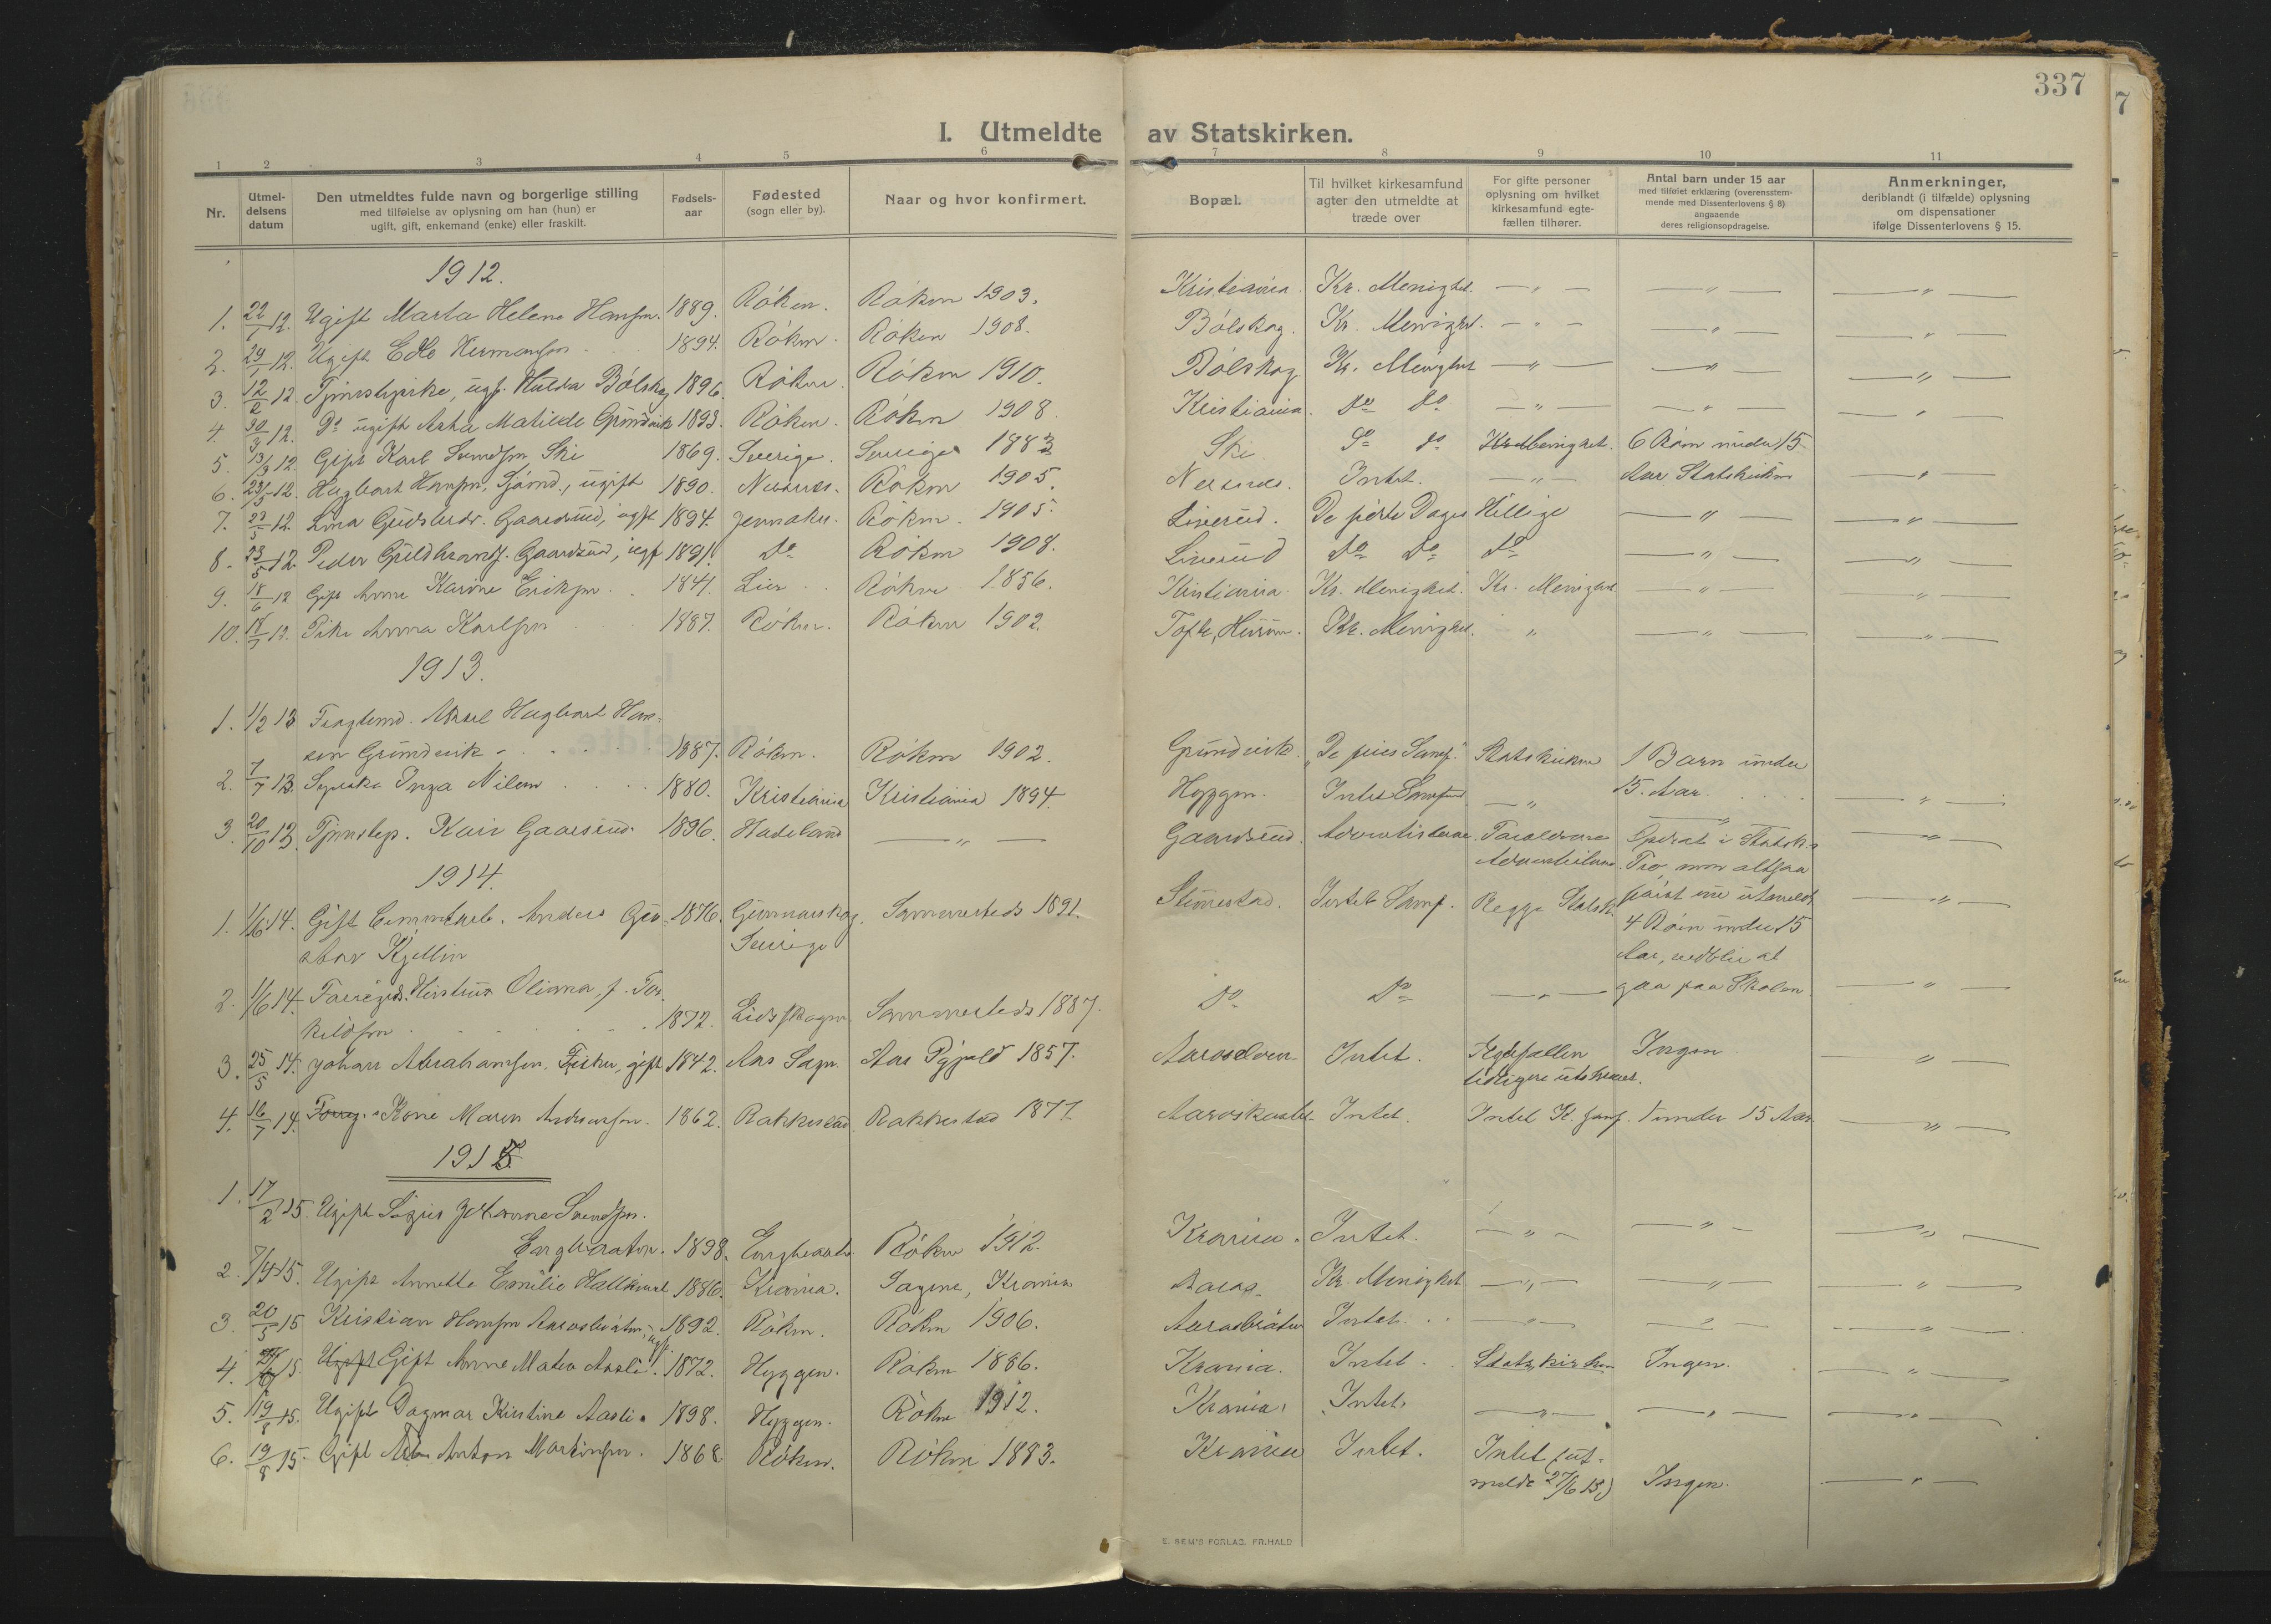 337
7
I. Utmeldte av Statskirken.
1 2 3 4 5 6 7 8 9 10 11
Nr.
Utmel-
delsens
datum
Den utmeldtes fulde navn og borgerlige stilling
med tilføielse av oplysning om han (hun) er
ugift, gift, enkemand (enke) eller fraskilt.
Fødsels-
aar
Fødested
(sogn eller by).
Naar og hvor konfirmert.
Bopæl.
Til hvilket kirkesamfund
agter den utmeldte at
træde over
For gifte personer
oplysning om hvilket
kirkesamfund egte-
fællen tilhører.
Antal barn under 15 aar
med tilføiet erklæring (overensstem-
mende med Dissenterlovens § 8)
angaaende
deres religionsopdragelse.
Anmerkninger,
deriblandt (i tilfælde) oplysning
om dispensationer
ifølge Dissenterlovens § 15.
1912.
1. 22/1 12. Ugift Marta Helene Hansen. 1889. Röken. Röken 1903. Kristiania. Kr. Menighet. — " — — " — — " —
2. 29/1 12. Ugift Hermansen 1894. Röken. Röken 1908. Bölskog. Kr. Menighet. — " — — " — — " —
3. 12/2 12. Tjenestepike, ugf. Hulda Bölskog 1896. Röken. Röken 1910. Bölskog Kr. Menighet — " — — " — — " —
4. 30/3 12. Do ugift Asta Matilde Grundvik 1893. Röken. Röken 1908 Kristiania. Do Do — " — — " — — " —
5. 13/3 12. Gift Karl Svendsen Ski 1869. Sverige. Sverige 1883 Ski Do do Kr. Menighet. 6 Börn under 15
6. 12. Hagbart Hansen, Sjömd., ugift 1890. Nærsnes. Röken 1905. Nersnes. Intet. — " — Aar Statskirken — " —
7. 23/5 12. Lina Gulsbrdr. Gaarsrud, ugft 1894. Röken. 1905. Liverud. De sidste Dages Hellige — " — — " —
8. 23/5 12. Peder Guldbrands. Gaardsrud, ugf 1891. Do Röken 1908. Liverud Do Do Do — " — — " —
9. 18/6 12 Gift Anne Karine Eriksen. 1841. Lier. Röken 1856. Kristiania. Kr. Menighet. Kr. Menighet — " — — " —
10. 18/7 12. Pike Anna Karlsen 1887. Röken. Röken 1902. Tofte, Hurum. Kr. Menighet. " — " — — " —
1913.
1. 1/2 13 Fragtemd. Aksel Hagbart Han-
sen Grundvik 1887. Röken. Röken 1902. Grundvik. "De fries Samf." Statskirken 1 Barn under
2. 7/7 13. Sypike Inga Nilsen 1880. Kristiania Kristiania 1894. Hyggen. Intet Samfund — " 15. Aar. — " —
3 20/10 13. Tjenstep. Gaarsrud. 1896. Hadeland — " — Gaardsrud. Adventisterne. Forældrene Opdrat i Statsk.s
Adventisterne. Tro, men altsaa
1914.
först nu utmeldt
1. 1/6 14. Gift Anders Gu- 1876. Gunnarskog. Sammesteds 1891. Slemmestad. Intet Samf. Begge Statsk. — " —
stav Kjellin Sverige
4 Börn under 15
Aar, vedblir at
gaa paa Skolen
2. 1/6 14. Oliana, f. Tor-
kildsen 1872. Eidsskogen Sammesteds 1887. Do Do — " — — " —
3. 25/5 14. Johan Abrahamsen, Fisker, gift 1842. Aas Sogn. Aas Pgjæld 1857. Aaroselven Intet. Egtefællen Ingen — " —
tidligere utskrevet.
4. 16/7 14. Kone Maren Andersen. 1862. Rakkestad. Rakkestad 1877. Intet. Intet K. samf. 1 under 15 Aar — " —
1915.
1. 17/2 15. Ugift Johanne Svendsen.
1898. Röken 1912. Krania. Intet. — " — — " — — " —
2. 7/4 15. Ugift Annette Emilie 1886. Krania. Sagene, Krania Kr. Menighet — " — — " — — " —
3. 20/5 15 Kristian Hansen Aarosbråten, ugft. 1892. Röken. Röken 1906. Aarosbråten Intet. — " — — " — — " —
4. 15. Gift Anne Matea Aasli. 1872. Hyggen. Röken 1886. Krania. Intet. Statskirken Ingen. — " —
5. 19/8 15. Ugift Dagmar Kirstine Aasli. 1898. Hyggen. Röken 1912. Krania. Intet. — " — — " — — " —
6. 19/8 15. Gift Anton Martinsen. 1868 Röken. Röken 1883. Krania Intet. Intet (ut-
meldt 27/6 15) Ingen. — " —
E. SEM'S FORLAG, FR.HALD